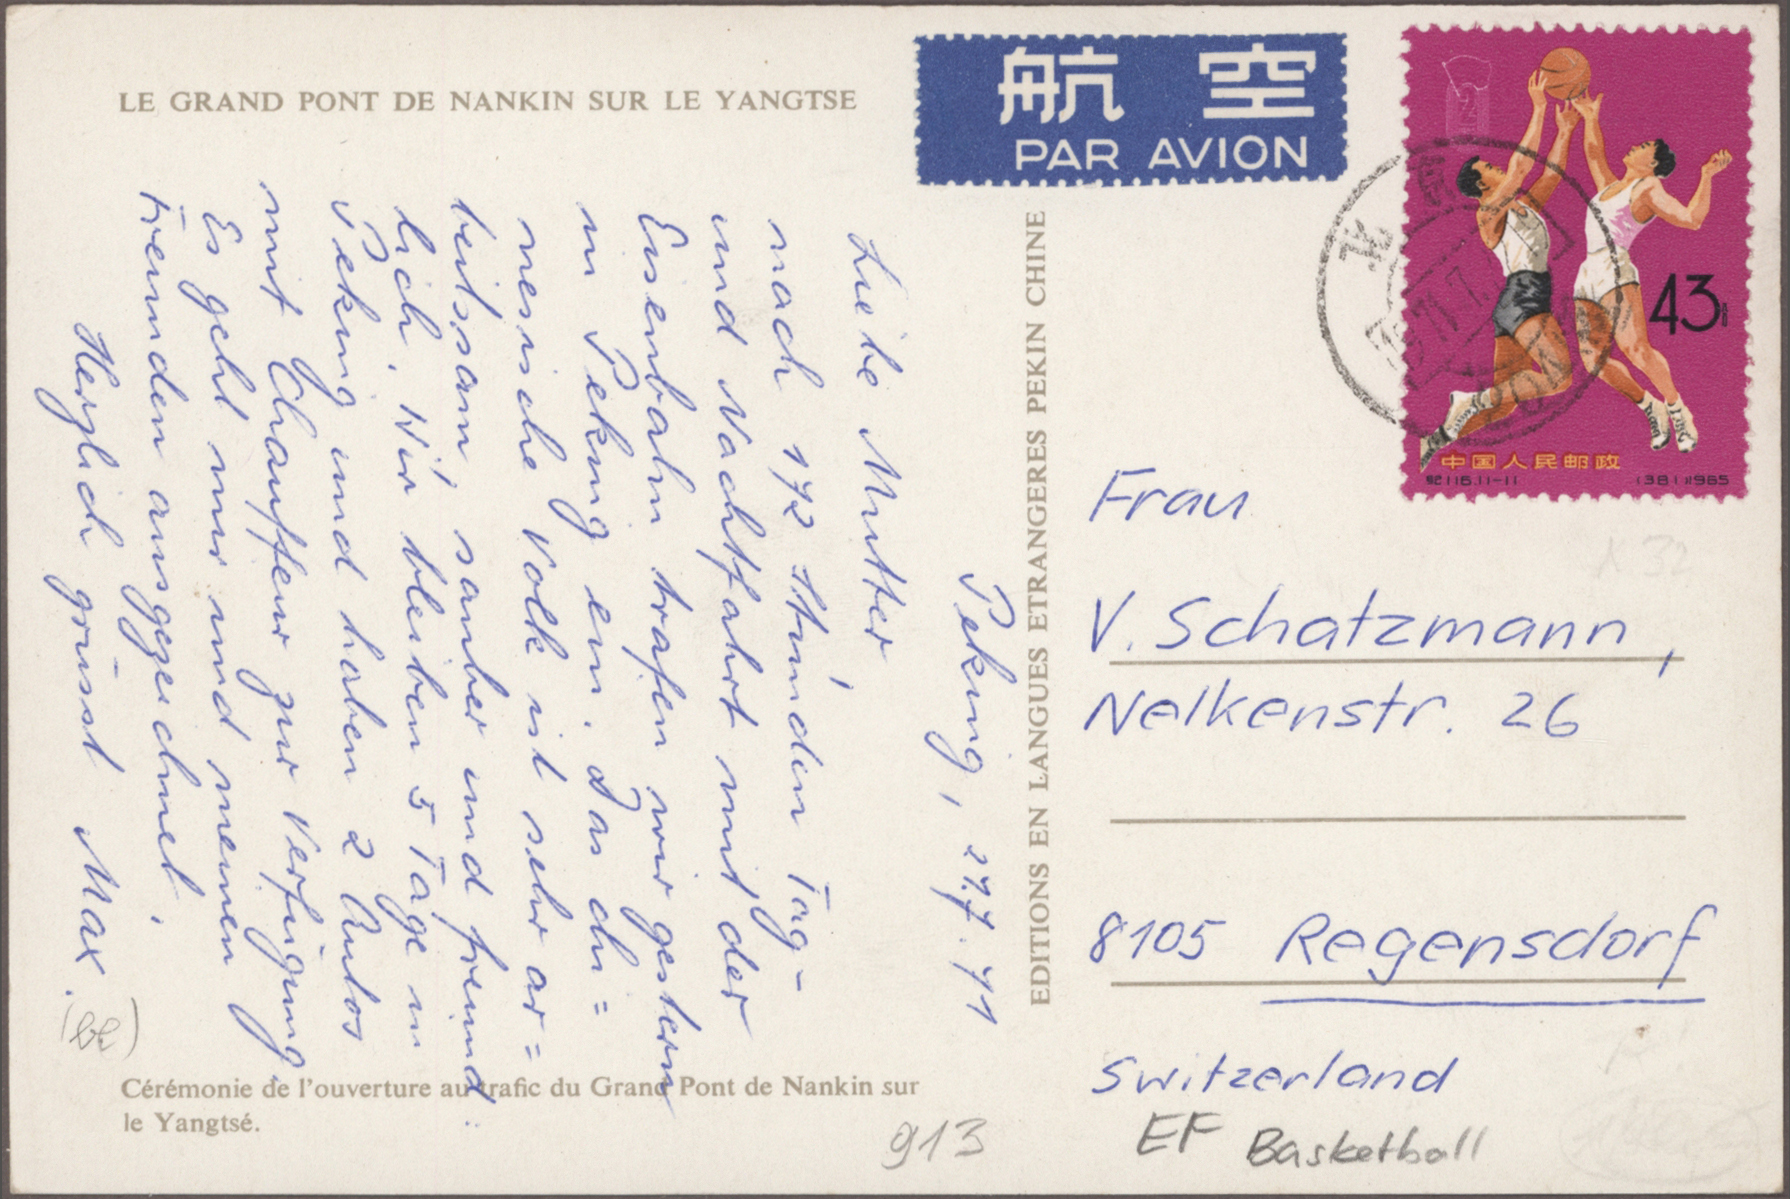 LE GRAND PONT DE NANKIN SUR LE YANGTSE
航 空
PAR AVION
43
中国人民邮政
纪116.11-11
(381)1965
北京
Peking, 27.7.71
Liebe Mutter
nach 172 stünden Tag-
und Nachtfahrt mit der
Eisenbahn trafen wir gestern
in Peking ein. Das chi=
nesische Volk ist sehr ar=
beitssam, sauber und freund-
lich. Wir bleiben 5 Tage in
Peking und haben 2 Autos
mit Chauffeur zur Verfügung.
Es geht mir und meinen
Freunden ausgezeichnet.
Herzlich grüsst Max.
EDITIONS EN LANGUES ETRANGERES PEKIN CHINE
Frau
V. Schatzmann,
Nelkenstr. 26
8105 Regensdorf
Switzerland
Cérémonie de l'ouverture au trafic du Grand Pont de Nankin sur
le Yangtsé.
913
EF Basketball